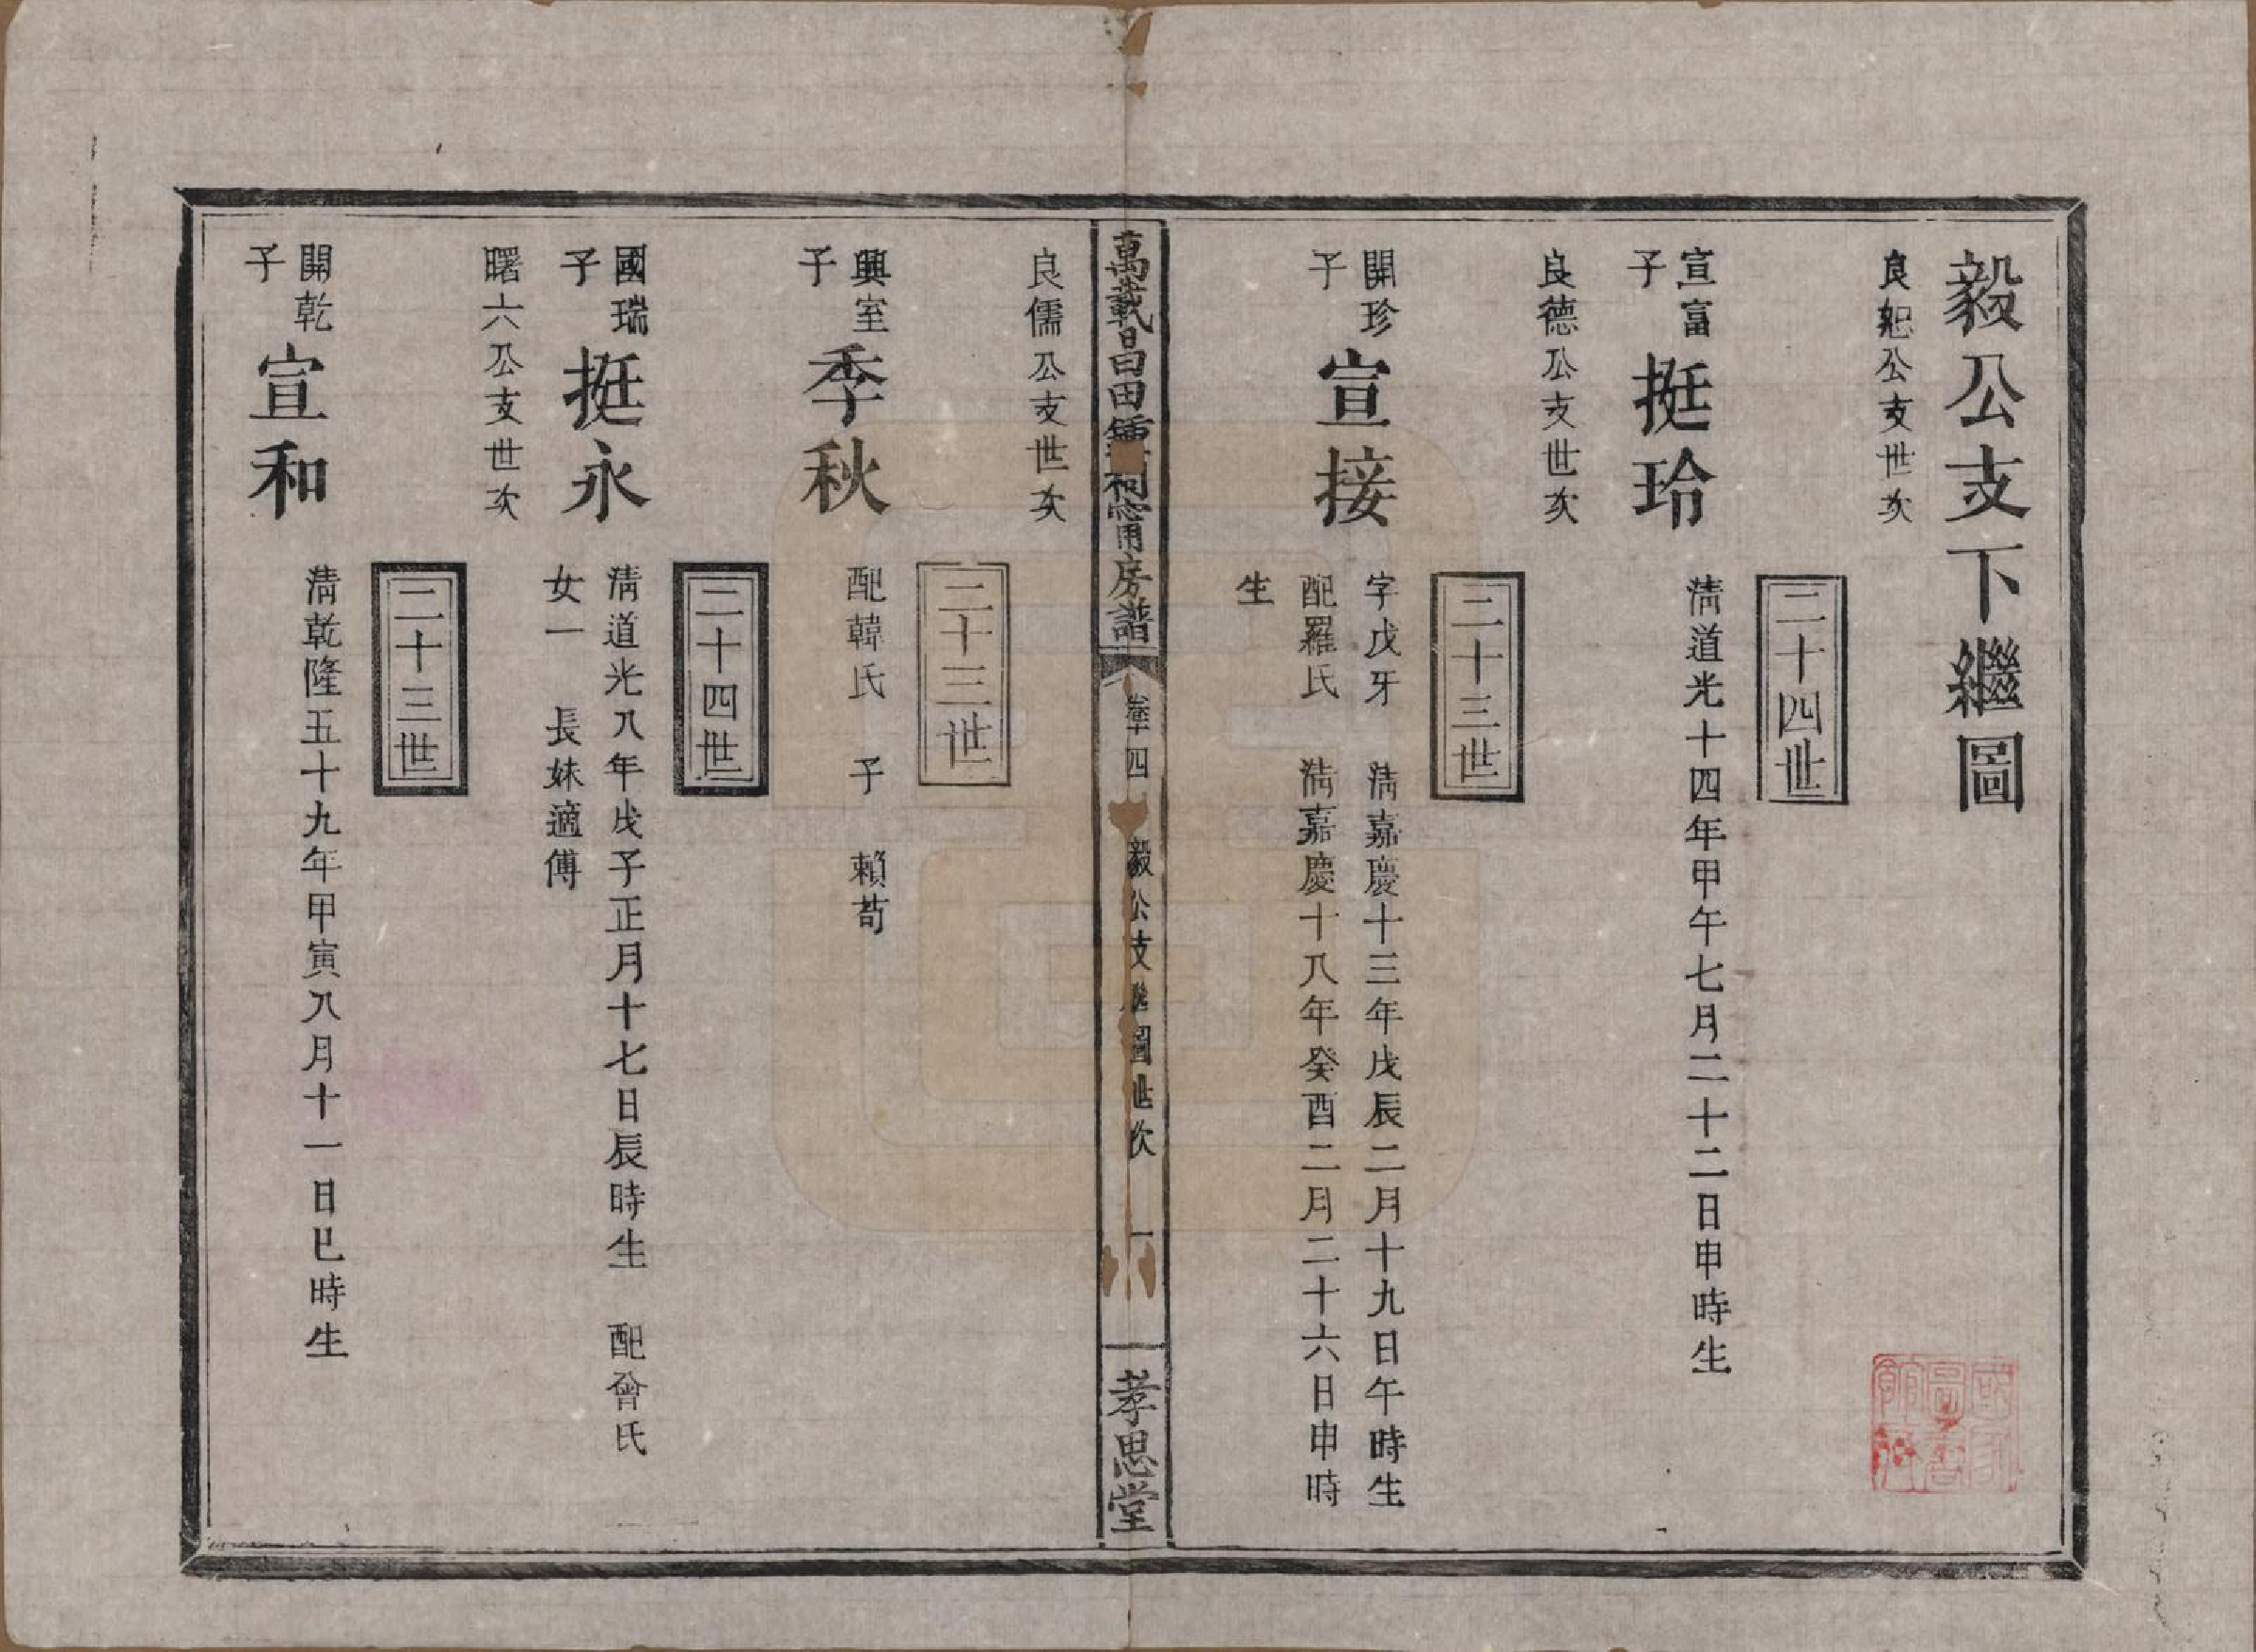 毅公支下繼圖
良䎢公支世次
二十四世
宣富子
挺玲
清道光十四年甲午七月二十二日申時生
良德公支世次
二十三世
開珍子
宣接
字戊牙 清嘉慶十三年戊辰二月十九日午時生
配羅氏 清嘉慶十八年癸酉二月二十六日申時
生
萬載昌田鍾祠甯房譜
卷十四
毅公支繼圖世次
一
孝思堂
良儒公支世次
二十三世
興室子
季秋
配韓氏 子 賴苟
二十四世
國瑞子
挺永
清道光八年戊子正月十七日辰時生 配曾氏
女一 長妹適傅
曙六公支世次
二十三世
開乾子
宣和
清乾隆五十九年甲寅八月十一日巳時生